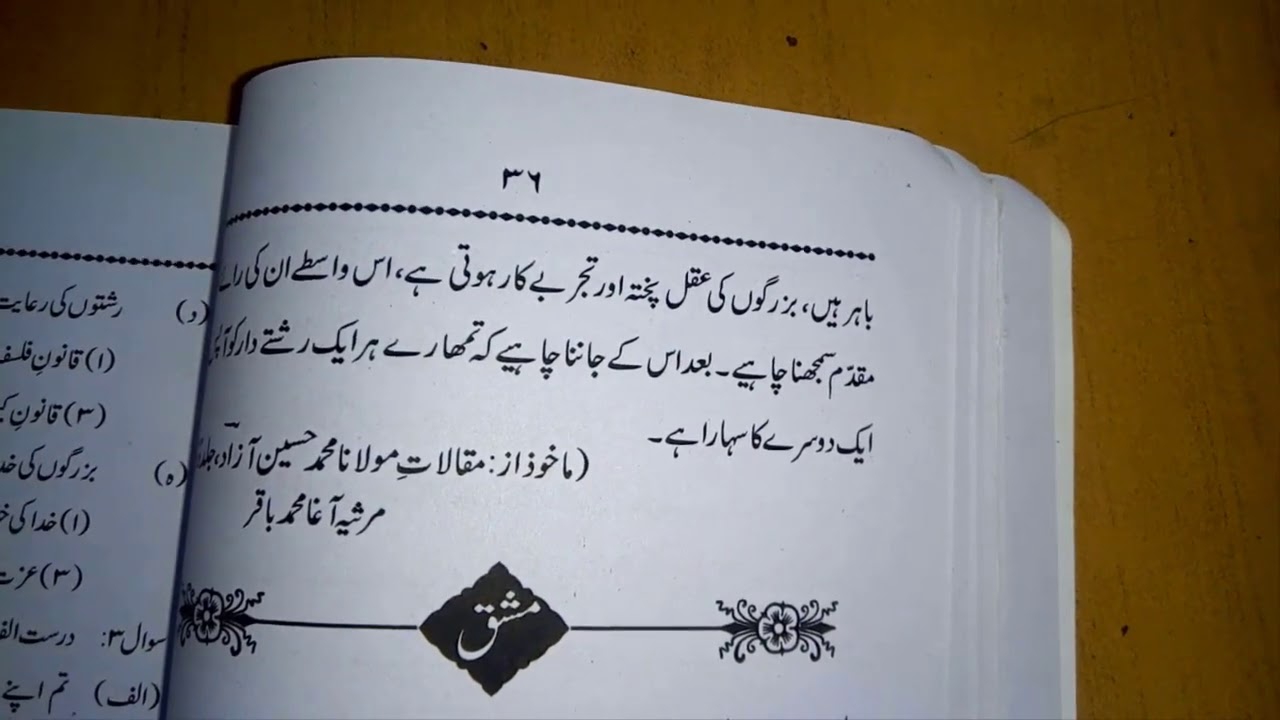 ۳۶
باہر ہیں، بزرگوں کی عقل پختہ اور تجربے کار ہوتی ہے، اس واسطے ان کی رائے
مقدّم سمجھنا چاہیے۔ بعد اس کے جاننا چاہیے کہ تمھارے ہر ایک رشتے دار کو آپس
ایک دوسرے کا سہارا ہے۔
(ماخوذ از: مقالاتِ مولانا محمد حسین آزادؔ، جلد
مرثیہ آغا محمد باقر
مشق
(د) رشتوں کی رعایت
(۱) قانونِ
(۳) قانونِ
(ہ) بزرگوں کی
(۱) خدا کی
(۳) عزت
سوال ۳: درست
(الف) تم اپنے